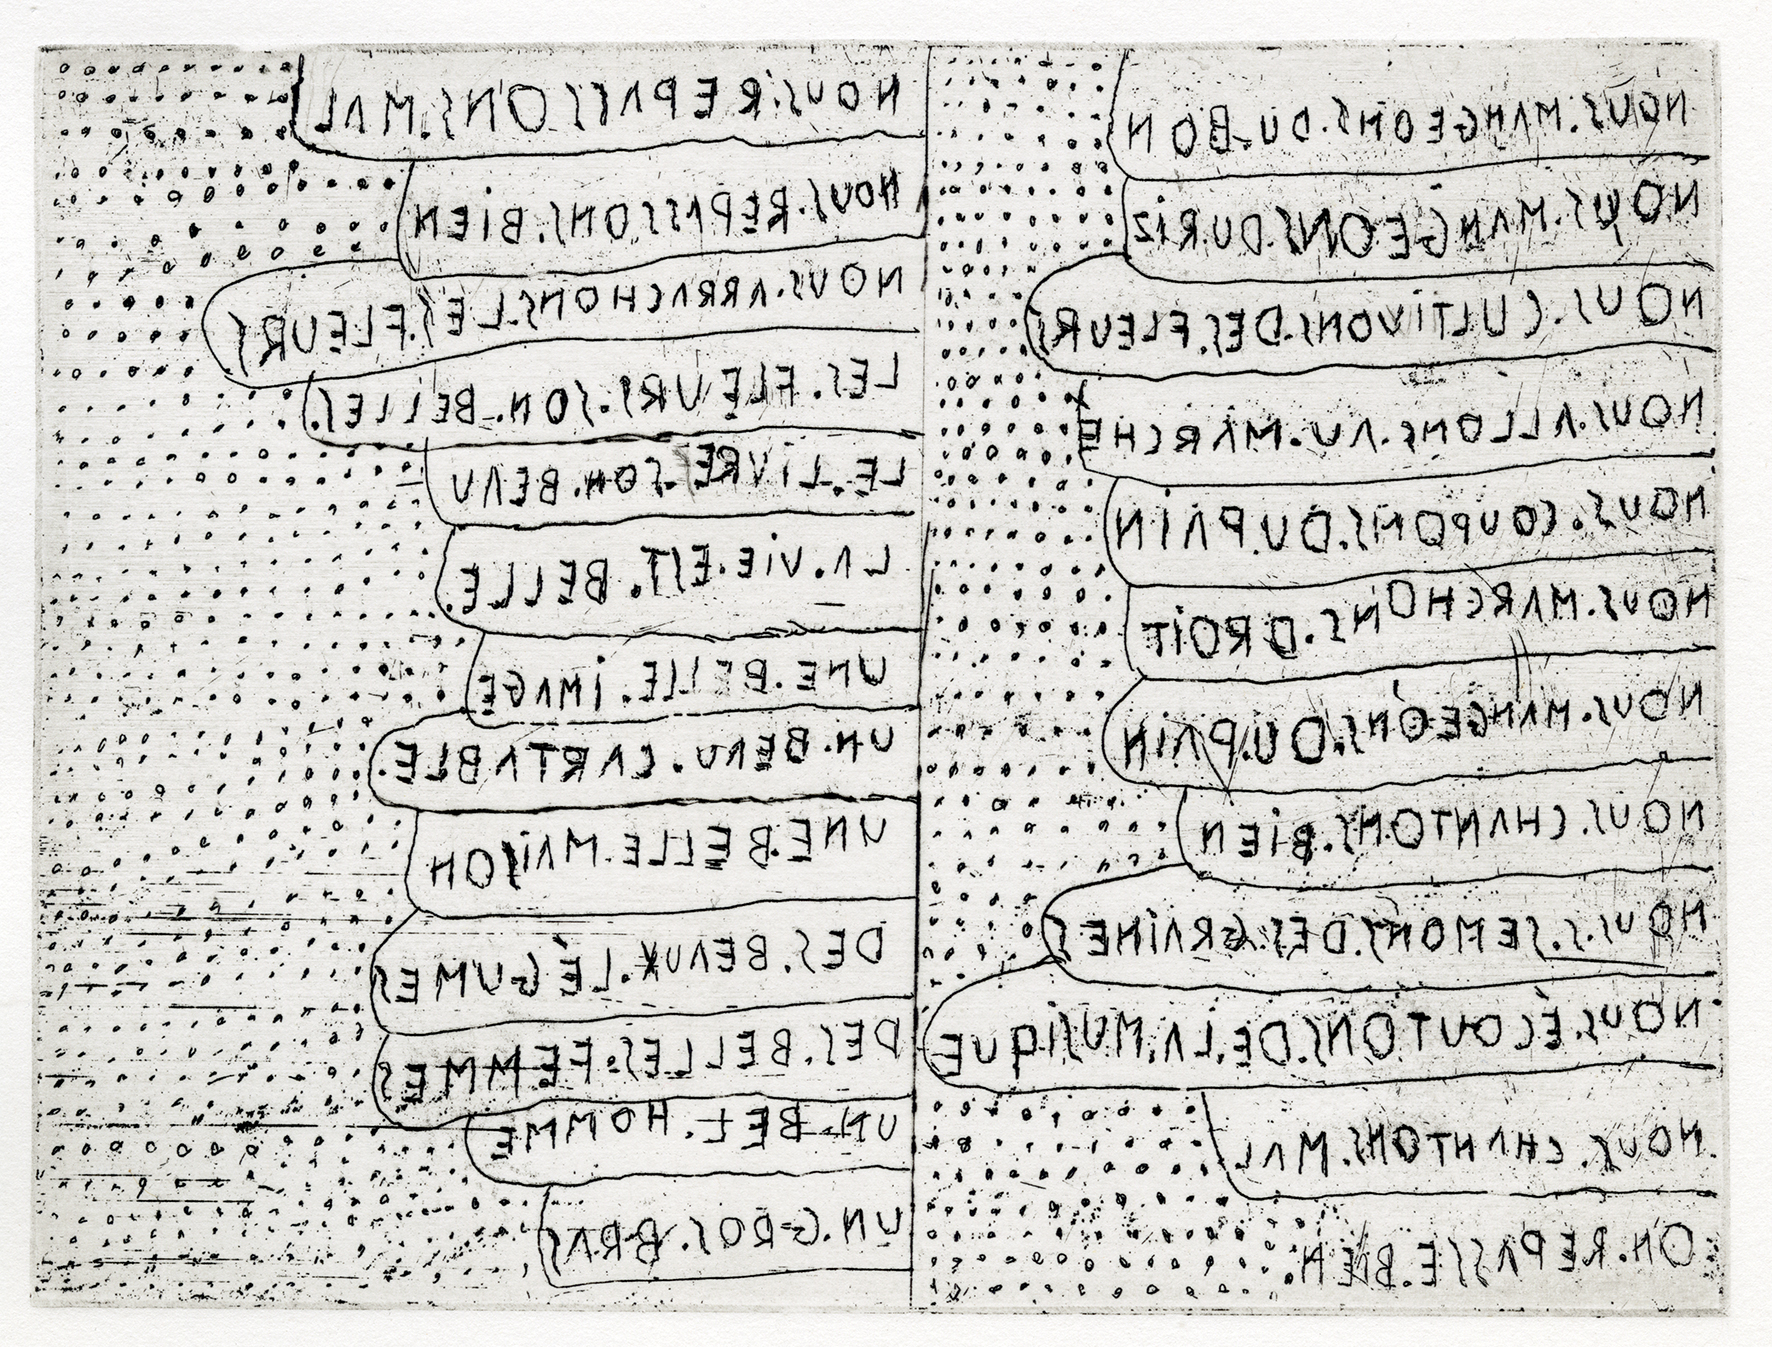 NOUS.MANGEONS.DU-BON
NOUS.MANGEONS.DU.RIZ
NOUS.CULTIVONS.DES.FLEURS
NOUS.ALLONS.AU.MARCHE
NOUS.COUPONS.DU.PAIN
NOUS.MARCHONS.DROIT
NOUS.MANGEONS.DU.PAIN
NOUS.CHANTONS.BIEN
NOUS.S.SEMONS.DES.GRAINES
NOUS.ÉCOUTONS.DE.LA.MUSIqUE
NOUS.CHANTONS.MAL
ON.REPASSE.BIEN.
NOUS.REPASSONS.MAL
NOUS.REPASSONS.BIEN
NOUS.ARRACHONS.LES.FLEURS
LES.FLEURS.SON.BELLES.
LE.LIVRE.SON.BEAU
LA.VIE.EST.BELLE.
UNE.BELLE.IMAGE
UN.BEAU.CARTABLE.
UNE.BELLE.MAISON
DES.BEAUX.LÉGUMES
DES.BELLES.FEMMES
UN.BEL.HOMME
UN.GROS.BRAS